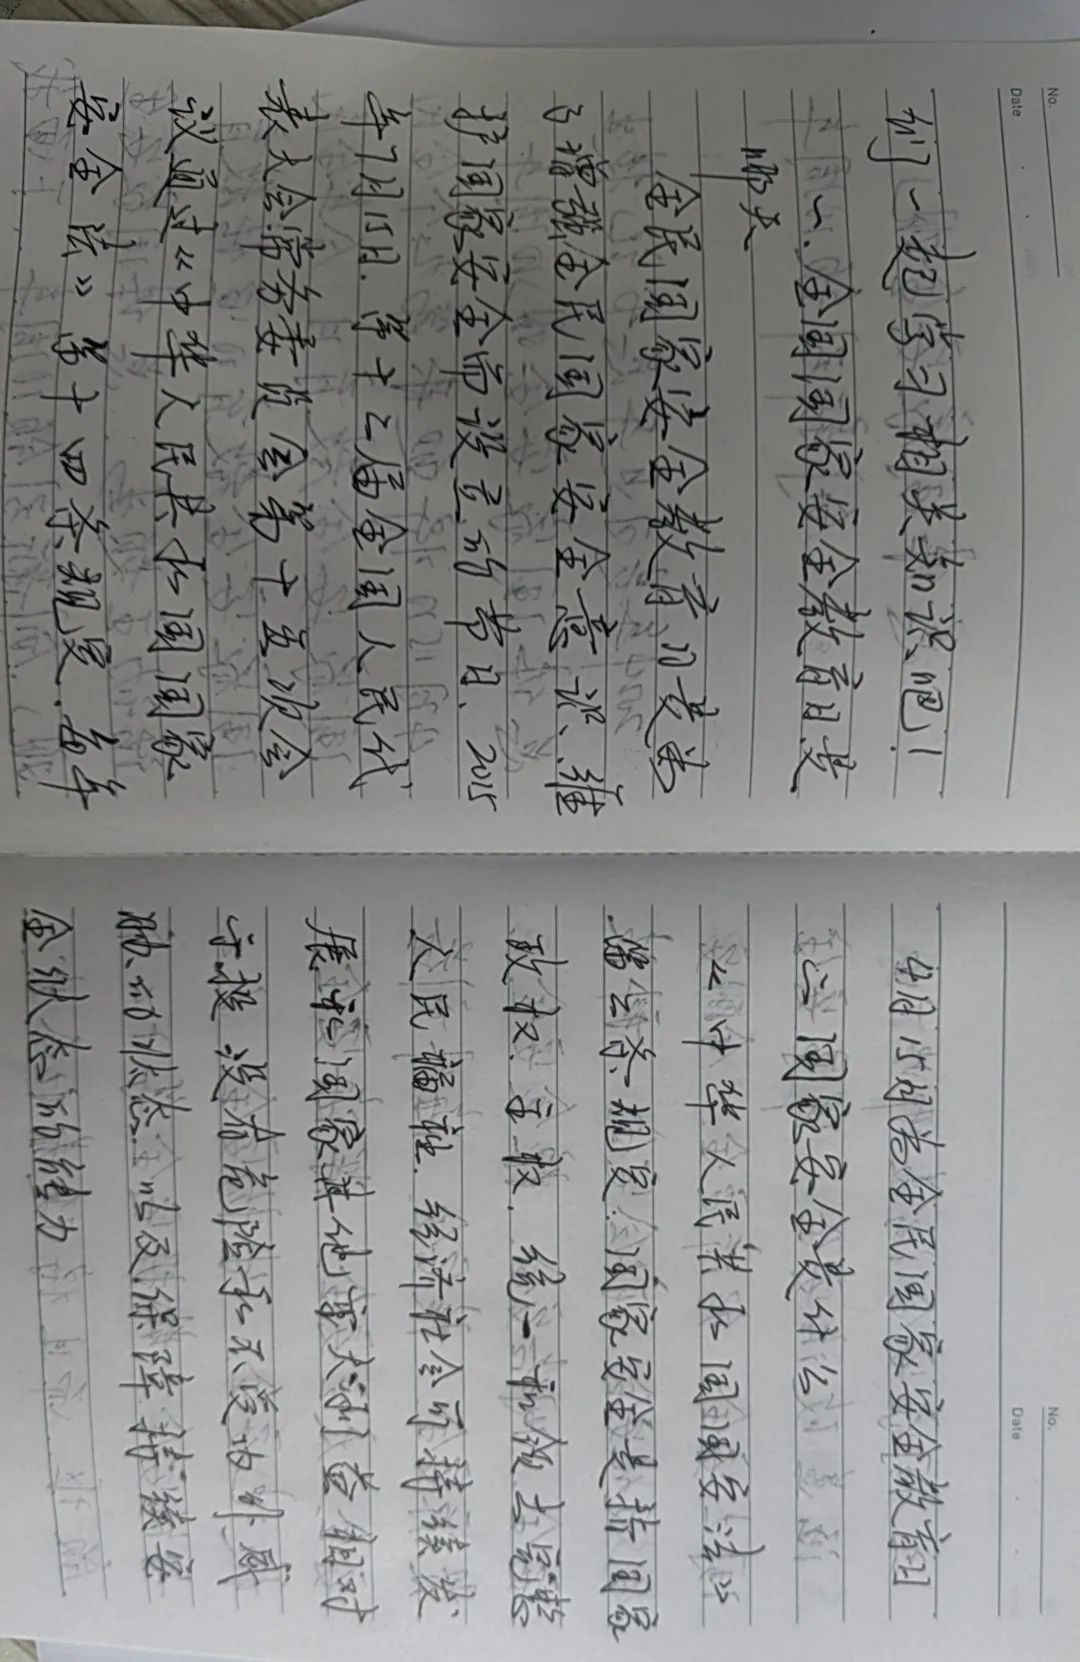 No.
Date
们一起学习相关知识吧！
一、全国国家安全教育日是
哪天
全民国家安全教育日是为
了增强全民国家安全意识、维
护国家安全而设立的节日、2015
年7月1日.第十二届全国人民代
表大会常务委员会第十五次会
议通过《中华人民共和国国家
安全法》第十四条规定.每年
No.
Date
4月15日为全民国家安全教育日
二国家安全是什么
《中华人民共和国国安法》
第二条规定.国家安全是指国家
政权.主权.统一和领土完整
人民福祉.经济社会可持续发
展和国家其他重大利益相对
于没有危险和不受内外威
胁的状态.以及保障持续安
全状态的能力